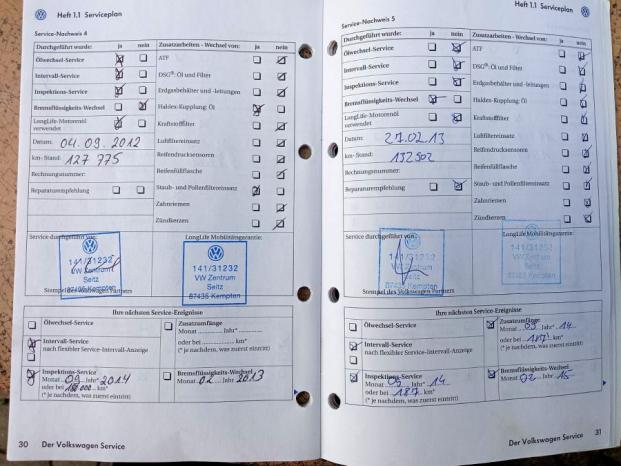 Heft 1.1 Serviceplan
Service-Nachweis 4
Durchgeführt wurde: ja nein
Ölwechsel-Service
Intervall-Service
Inspektions-Service
Bremsflüssigkeits-Wechsel
LongLife-Motorenöl verwendet
Datum: 04.09.2012
km-Stand: 127 775
Rechnungsnummer:
Reparaturempfehlung
Zusatzarbeiten - Wechsel von: ja nein
ATF
DSG®: Öl und Filter
Erdgasbehälter und -leitungen
Haldex-Kupplung: Öl
Kraftstofffilter
Luftfiltereinsatz
Reifendrucksensoren
Reifenfüllflasche
Staub- und Pollenfiltereinsatz
Zahnriemen
Zündkerzen
Service durchgeführt von:
141/31232
VW Zentrum
Seitz
87435 Kempten
Stempel des Volkswagen Partners
LongLife Mobilitätsgarantie:
141/31232
VW Zentrum
Seitz
87435 Kempten
Ihre nächsten Service-Ereignisse
Ölwechsel-Service
Intervall-Service
nach flexibler Service-Intervall-Anzeige
Inspektions-Service
Monat 09 Jahr* 2014
oder bei km*
(* je nachdem, was zuerst eintritt)
Zusatzumfänge
Monat Jahr*
oder bei km*
(* je nachdem, was zuerst eintritt)
Bremsflüssigkeits-Wechsel
Monat 02 Jahr 2013
30 Der Volkswagen Service
Heft 1.1 Serviceplan
Service-Nachweis 5
Durchgeführt wurde: ja nein
Ölwechsel-Service
Intervall-Service
Inspektions-Service
Bremsflüssigkeits-Wechsel
LongLife-Motorenöl verwendet
Datum: 27.02.13
km-Stand: 132502
Rechnungsnummer:
Reparaturempfehlung
Zusatzarbeiten - Wechsel von: ja nein
ATF
DSG®: Öl und Filter
Erdgasbehälter und -leitungen
Haldex-Kupplung: Öl
Kraftstofffilter
Luftfiltereinsatz
Reifendrucksensoren
Reifenfüllflasche
Staub- und Pollenfiltereinsatz
Zahnriemen
Zündkerzen
Service durchgeführt von:
141/31232
VW Zentrum
Seitz
87435 Kempten
Stempel des Volkswagen Partners
LongLife Mobilitätsgarantie:
141/31232
VW Zentrum
Seitz
87435 Kempten
Ihre nächsten Service-Ereignisse
Ölwechsel-Service
Intervall-Service
nach flexibler Service-Intervall-Anzeige
Inspektions-Service
Monat 09 Jahr* 14
oder bei 187. km*
(* je nachdem, was zuerst eintritt)
Zusatzumfänge
Monat 09 Jahr* 14
oder bei 187. km*
(* je nachdem, was zuerst eintritt)
Bremsflüssigkeits-Wechsel
Monat 02 Jahr 15
Der Volkswagen Service 31